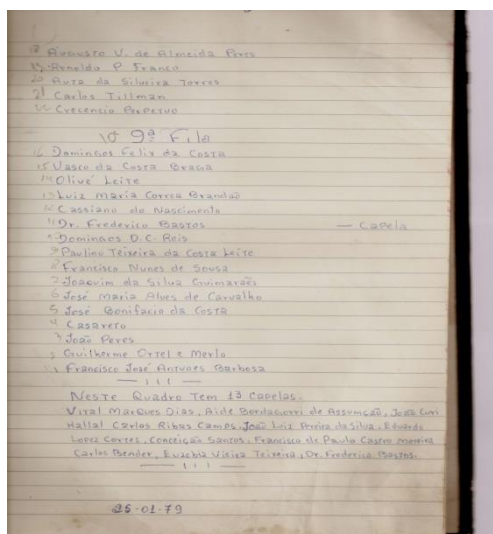 18 Augusto V. de Almeida Peres
19 Arnaldo P. Franco
20 Aura da Silveira Torres
21 Carlos Tillman
22 Crecencio Perpetuo
10 9ª Fila
16 Domingos Felix da Costa
15 Vasco da Costa Braga
14 Olivé Leite
13 Luiz Maria Correa Brandão
12 Cassiano do Nascimento
11 Dr. Frederico Bastos — Capela
Domingos D.C. Reis
9 Paulino Teixeira da Costa Leite
Francisco Nunes de Sousa
7 Joaquim da Silva Guimarães
6 José Maria Alves de Carvalho
5 José Bonifacio da Costa
4 Casareto
3 João Peres
Guilherme Ortel e Merlo
1 Francisco José Antunes Barbosa
— 111 —
Neste Quadro Tem 13 Capelas.
Vital Marques Dias, Aide de Assumção, João Curi
Hallal Carlos Ribas Campos, João Luiz Pereira da Silva, Eduardo
Lopez Cortes, Conceição Santos, Francisco de Paula Castro Moreira
Carlos Bender, Euzebia Vieira Teixeira, Dr. Frederico Bastos.
— 111 —
26-01-79